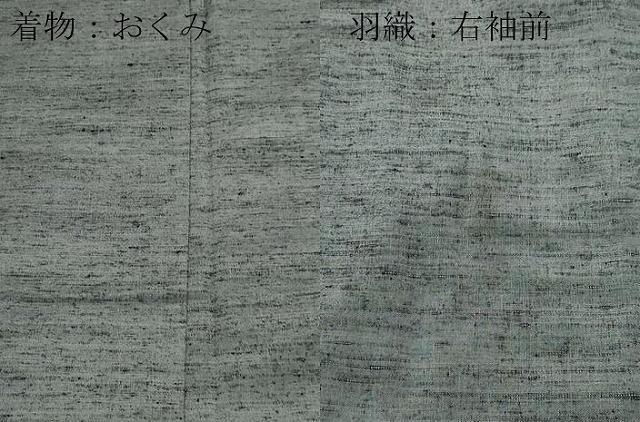 着物：おくみ
羽織：右袖前